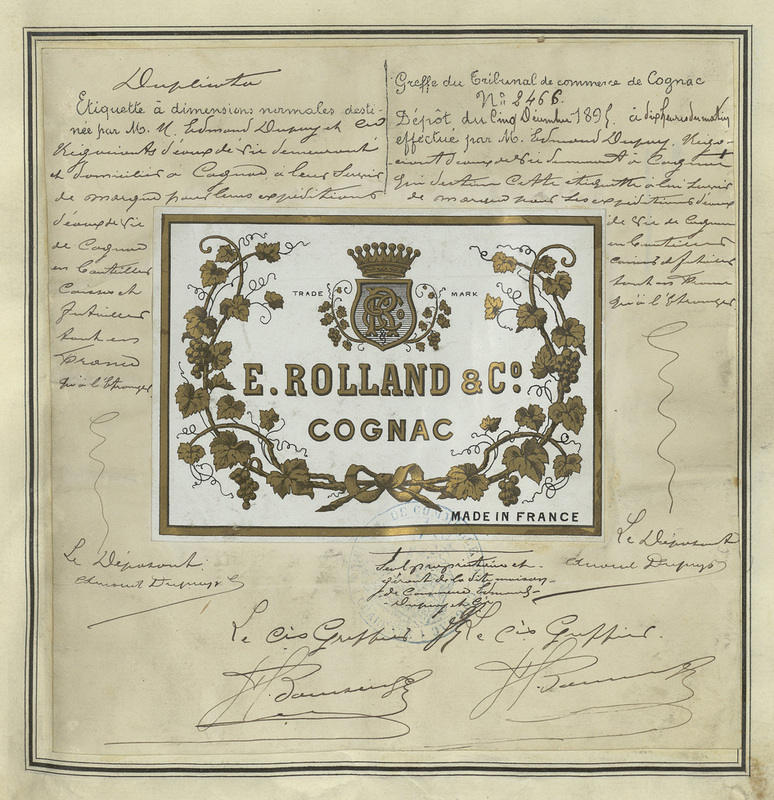 Duplicata
Etiquette à dimensions normales desti-
née par M. M. Edmond Dupuy et Cie
Négociants d'eaux de vie demeurant
et domiciliés à Cognac à leur servir
de marque pour leurs expéditions
d'eaux de vie
de Cognac
en bouteilles
caisses et
futailles
tant en
France
qu'à l'Etranger
Greffe du Tribunal de commerce de Cognac
No 2466.
Dépôt du Cinq Décembre 1895 à dix heures du matin
effectué par M. Edmond Dupuy, Négo-
ciant d'eaux de vie demeurant à Cognac
qui destine cette étiquette à lui servir
de marque pour les expéditions d'eaux
de vie de Cognac
en bouteilles
caisses et futailles
tant en France
qu'à l'Etranger
TRADE MARK
RC Co
E. ROLLAND & Co.
COGNAC
MADE IN FRANCE
Le Déposant
Edmond Dupuy
Seul propriétaire et
gérant de la dite maison
de Commerce Edmond
Dupuy et Cie
Le Déposant
Edmond Dupuy
Le Cis Greffier
Le Cis Greffier.